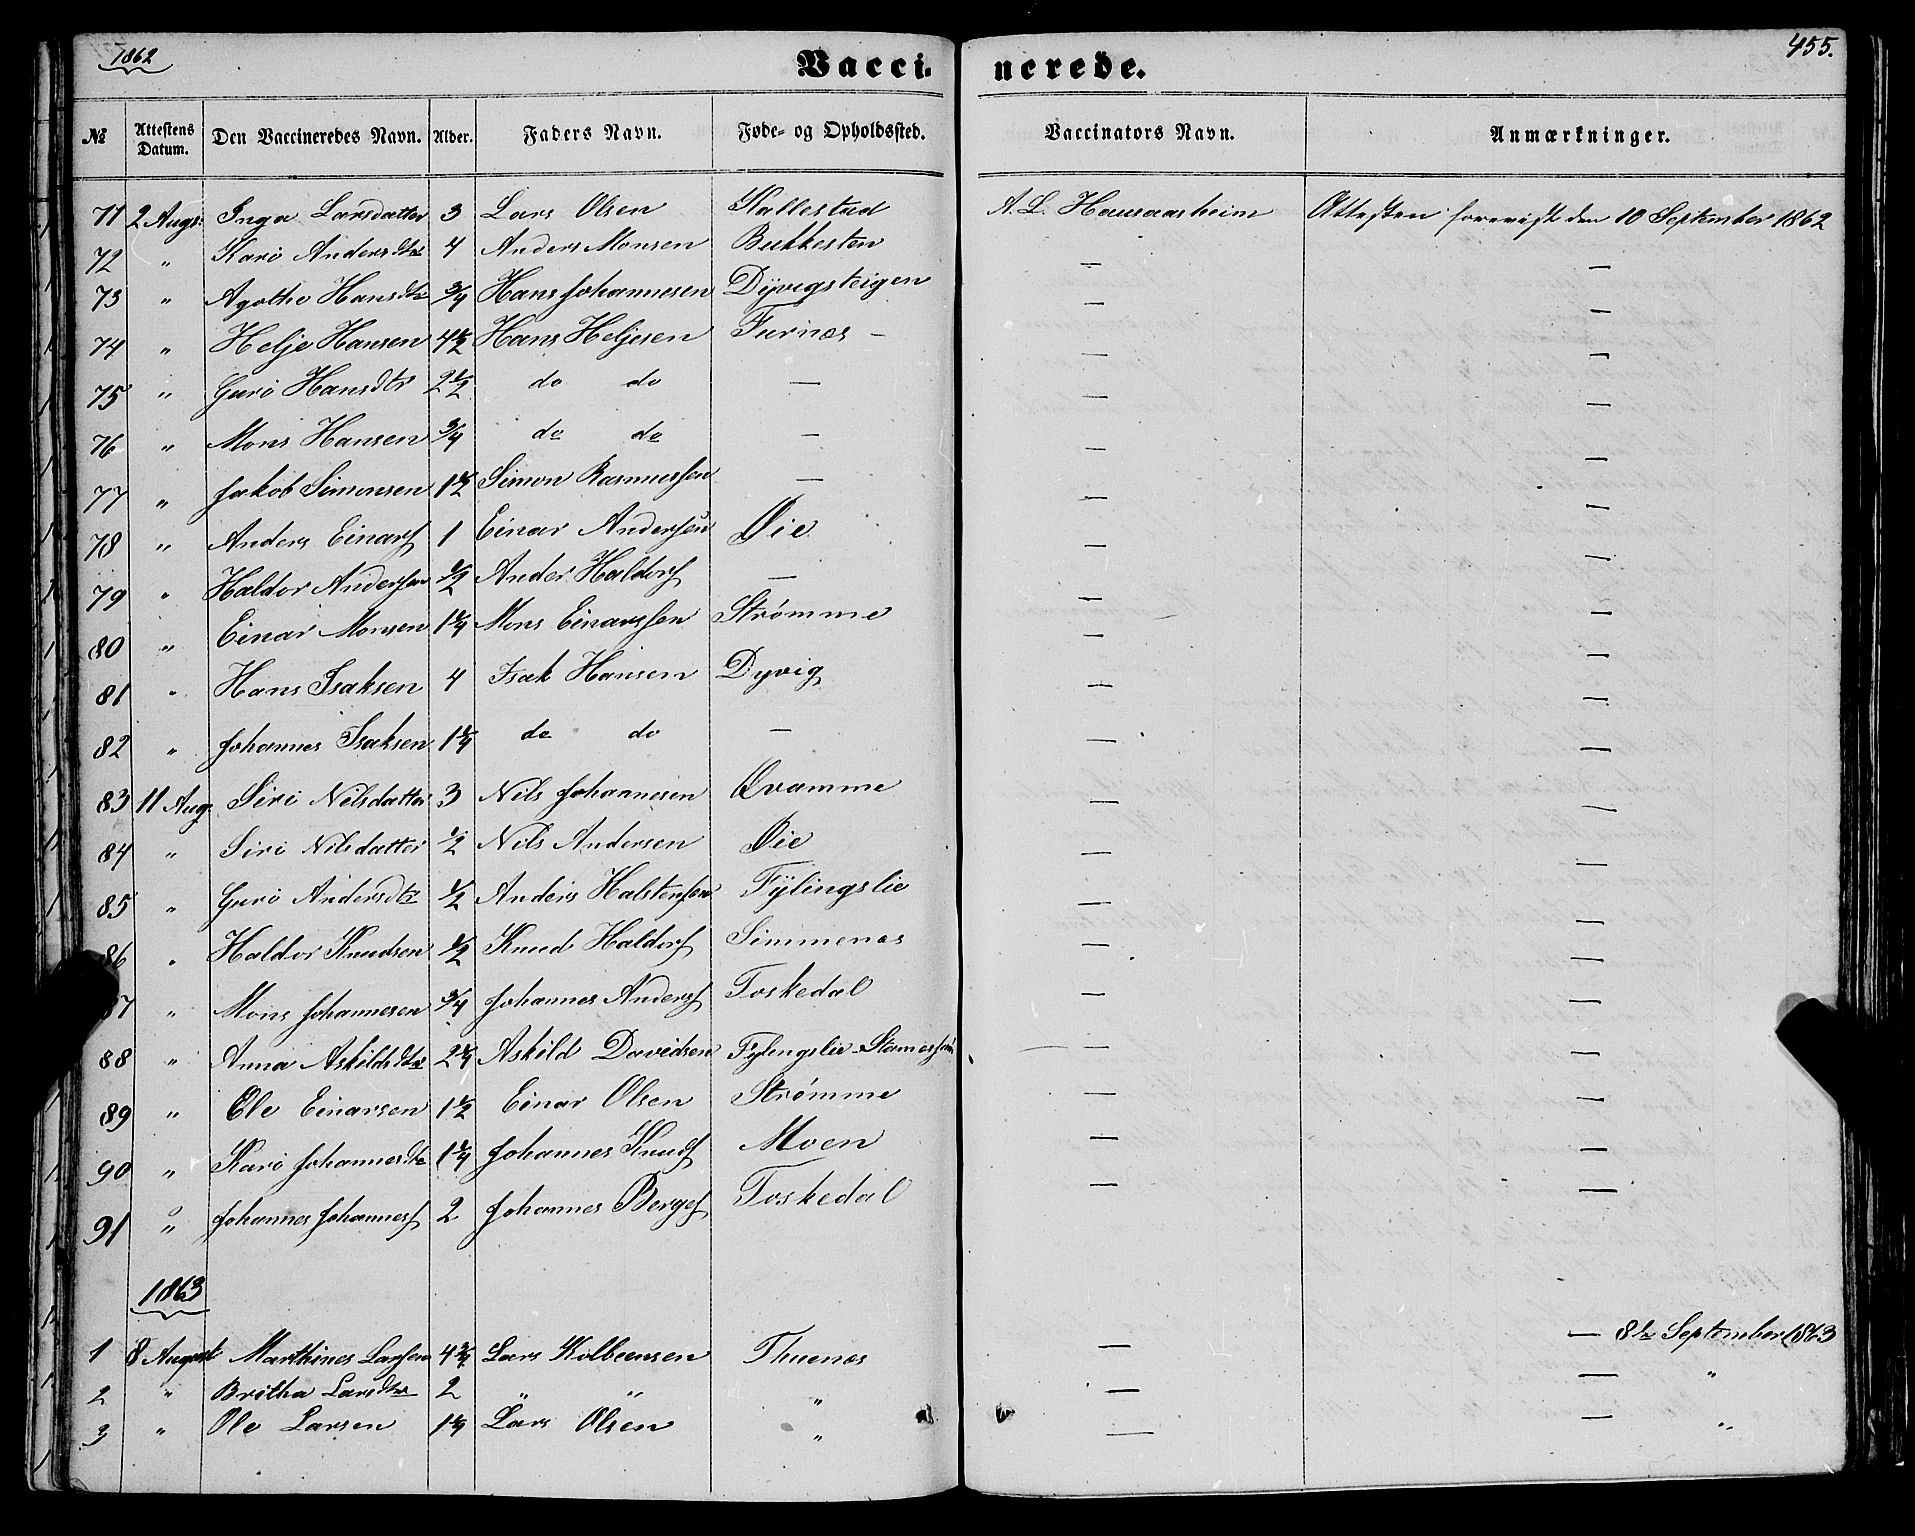 1862
Vacci- nerede.
455.
№ Attestens Datum. Den Vaccineredes Navn. Alder. Faders Navn. Føde- og Opholdssted. Vaccinators Navn. Anmærkninger.
71 2 Augs: Inga Larsdatter 3 Lars Olsen Kallestad A. L. Hausaasheim Attesten forevist den 10 September 1862
72 " Kari Andersdtr 4 Anders Monsen Bukkesten — —
73 " Agothe Hansdtr 3/4 Hans Johannesen Dyvigsteigen — —
74 " Helje Hansen 4 1/2 Hans Heljesen Furnes — — —
75 " Guri Hansdtr 2 1/2 do do — — —
76 " Mons Hansen 3/4 do do — — —
77 " Jakob Simonsen 1 1/2 Simon Rasmussen — — —
78 " Anders Einars 1 Einar Andersen Øie — —
79 " Haldor Andersen 1/2 Ander Haldors — — —
80 " Einar Monsen 1 1/4 Mons Einarssen Strømme — —
81 " Hans Isaksen 4 Isak Hansen Dyvig — —
82 " Johannes Isaksen 1 1/4 do do — — —
83 11 Aug. Siri Nilsdatter 3 Nils Johannesen Qvamme — —
84 " Siri Nilsdatter 1/2 Nils Andersen Øie — —
85 " Guri Andersdtr 1/2 Anders Halstensen Fylingslie — —
86 " Haldor Knudsen 1/2 Knud Haldors Simmenes — —
87 " Mons Johannesen 3/4 Johannes Anders Toskedal — —
88 " Anna Askildsdtr 2 1/4 Askild Davidsen Fylingslie — —
89 " Ole Einarsen 1 1/2 Einar Olsen Strømme — —
90 " Kari Johannesdtr 1 1/4 Johannes Knuds Moen — —
91 " Johannes Johannes 2 Johannes Berges Toskedal — —
1863
1 8 August Marthines Larsen 4 3/4 Lars Kolbeensen Thuenes — — 8de September 1863
2 " Britha Larsdtr 2 " " " — — "
3 " Ole Larsen 1 1/4 Lars Olsen " — — "